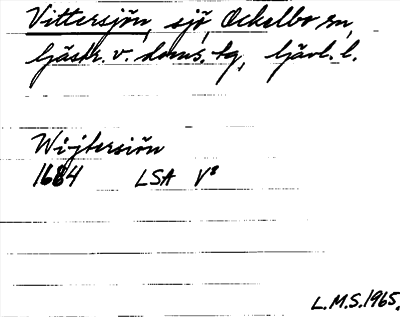 Vittersjön, sjö, Ockelbo sn,
Gästr. v. doms. tg, Gävl. l.
Wijtersiön
1684 LSA V²
L.M.S. 1965.